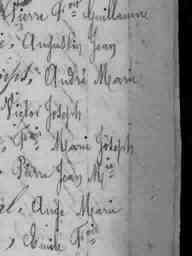 Pierre Fois Guillaume
Augustin Jean
André Marie
Victor Joseph
Marie Joseph
Pierre Jean Mie
Ange Marie
Emile Fois